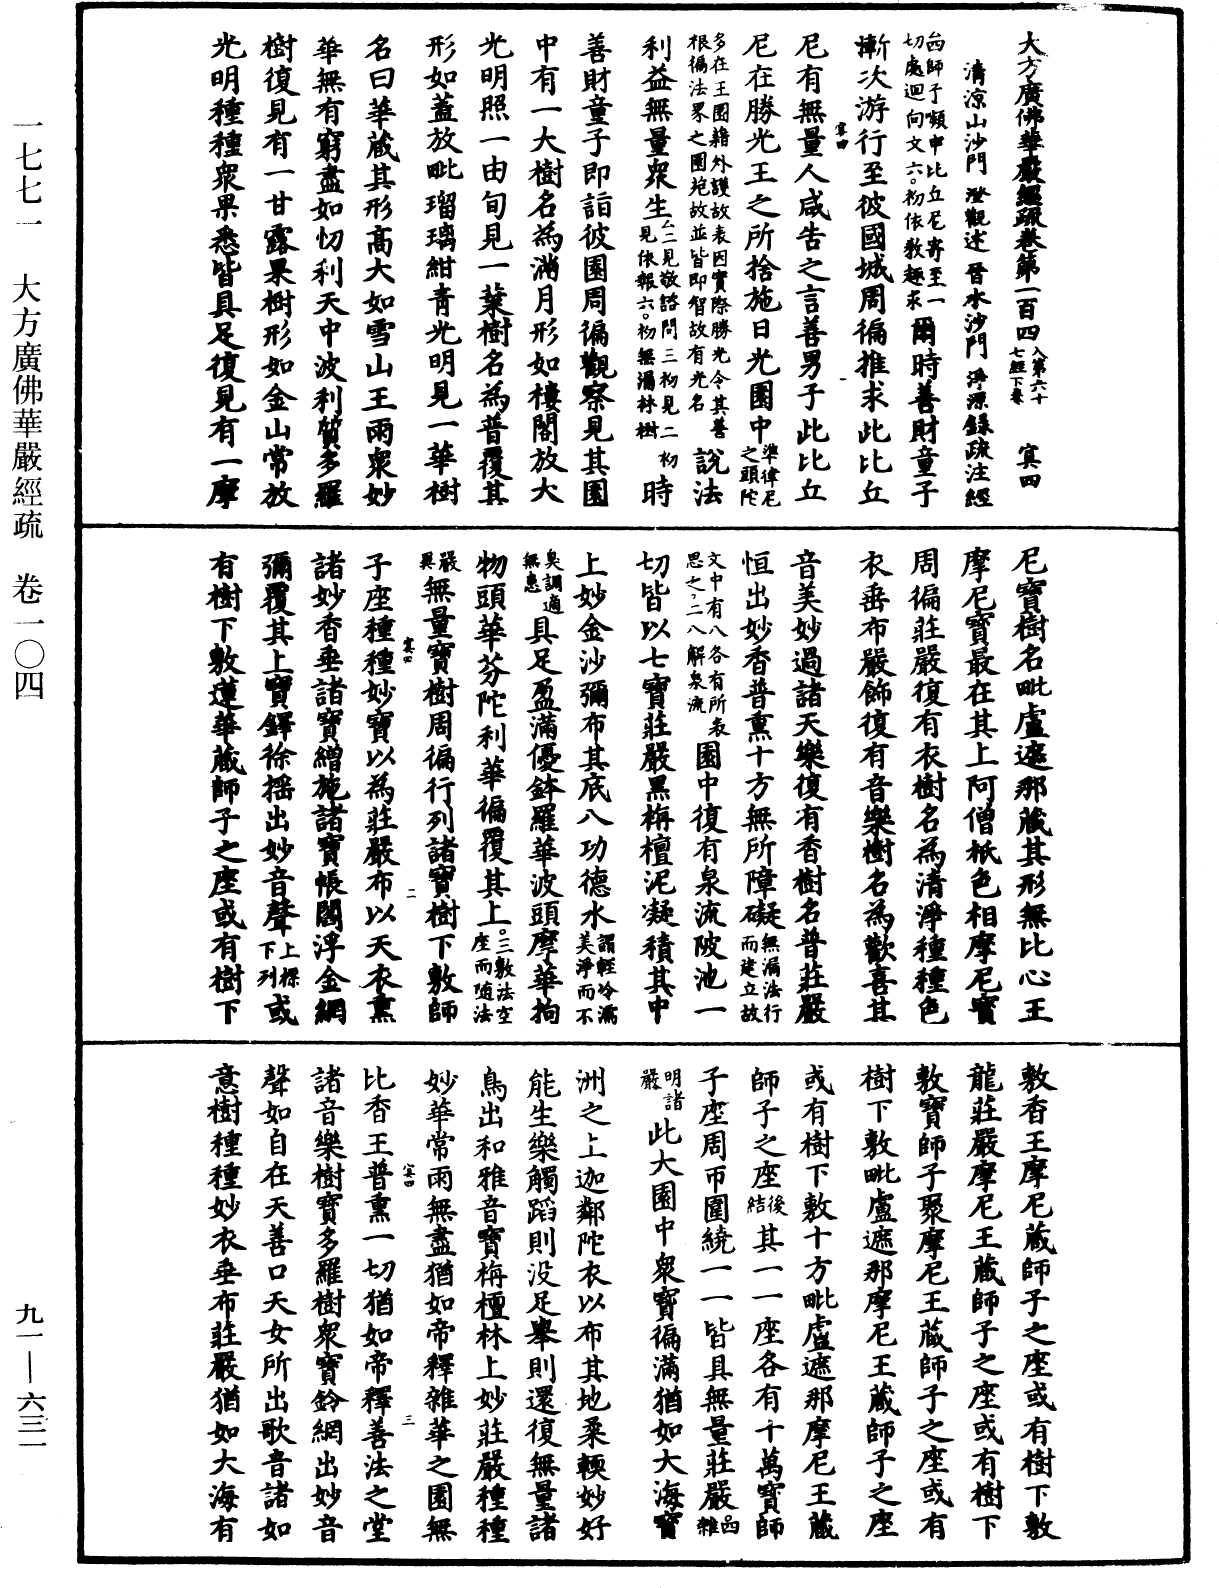 大方廣佛華嚴經疏卷第一百四 入第六十七經下卷 冥四
清涼山沙門 澄觀述 晉水沙門 淨源錄疏注經
西師子頻申比丘尼寄至一切處迴向文六。初依教趣求 爾時善財童子
漸次游行至彼國城周徧推求此比丘
尼有無量人咸告之言善男子此比丘
尼在勝光王之所捨施日光園中 準律尼之頭陀
多在王園籍外護故表因實際勝光令其善根徧法界之園苑故並皆即智故有光名 說法
利益無量衆生 厶二見敬諮問三初見二初見依報六。初無漏林樹 時
善財童子即詣彼園周徧觀察見其園
中有一大樹名為滿月形如樓閣放大
光明照一由旬見一葉樹名為普覆其
形如蓋放毗瑠璃紺青光明見一華樹
名曰華藏其形高大如雪山王雨衆妙
華無有窮盡如忉利天中波利質多羅
樹復見有一甘露果樹形如金山常放
光明種種衆果悉皆具足復見有一摩
尼寶樹名毗盧遮那藏其形無比心王
摩尼寶最在其上阿僧祇色相摩尼寶
周徧莊嚴復有衣樹名為清淨種種色
衣垂布嚴飾復有音樂樹名為歡喜其
音美妙過諸天樂復有香樹名普莊嚴
恒出妙香普熏十方無所障礙 無漏法行而建立故
文中有八各有所表思之。二八解泉流 園中復有泉流陂池一
切皆以七寶莊嚴黑栴檀泥凝積其中
上妙金沙彌布其底八功德水 謂輕冷濡美淨而不
臭調適無患 具足盈滿優鉢羅華波頭摩華拘
物頭華芬陀利華徧覆其上。 三敷法空座而隨法
嚴異 無量寶樹周徧行列諸寶樹下敷師
子座種種妙寶以為莊嚴布以天衣熏
諸妙香垂諸寶繒施諸寶帳閻浮金網
彌覆其上寶鐸徐搖出妙音聲 上標下列 或
有樹下敷蓮華藏師子之座或有樹下
敷香王摩尼藏師子之座或有樹下敷
龍莊嚴摩尼王藏師子之座或有樹下
敷寶師子聚摩尼王藏師子之座或有
樹下敷毗盧遮那摩尼王藏師子之座
或有樹下敷十方毗盧遮那摩尼王藏
師子之座 後結 其一一座各有十萬寶師
子座周帀圍繞一一皆具無量莊嚴 四雜
明諸嚴 此大園中衆寶徧滿猶如大海寶
洲之上迦鄰陀衣以布其地柔輭妙好
能生樂觸蹈則沒足舉則還復無量諸
鳥出和雅音寶栴檀林上妙莊嚴種種
妙華常雨無盡猶如帝釋雜華之園無
比香王普熏一切猶如帝釋善法之堂
諸音樂樹寶多羅樹衆寶鈴網出妙音
聲如自在天善口天女所出歌音諸如
意樹種種妙衣垂布莊嚴猶如大海有
冥四
一
冥四
二
冥四
三
一七七一 大方廣佛華嚴經疏 卷一〇四
九一—六三一